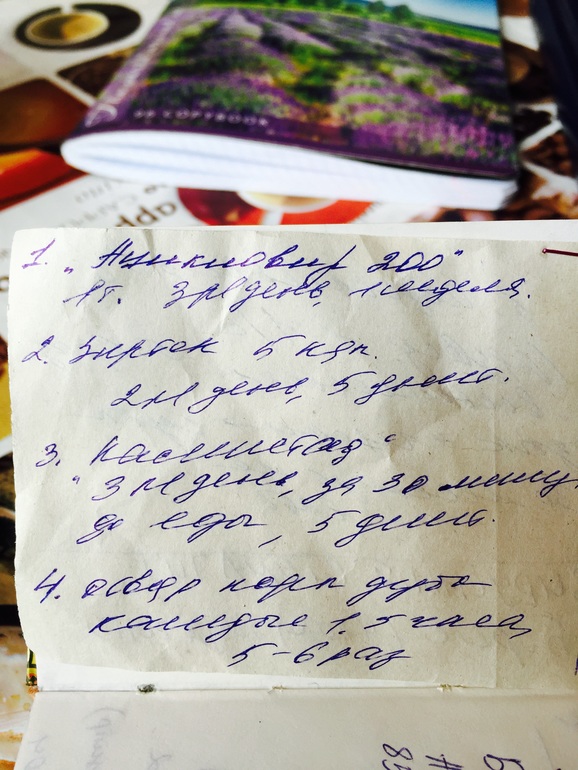 COPYBOOK
1. „Ацикловир 200“
1т. 3 р/день, 1 неделя.
2. Зиртек 5 кап.
2 р/день, 5 дней.
3.
" 3 р/день, за 30 мину
до еды, 5 дней.
4. отвар коры дуба
каждые 1,5 часа,
5-6 раз